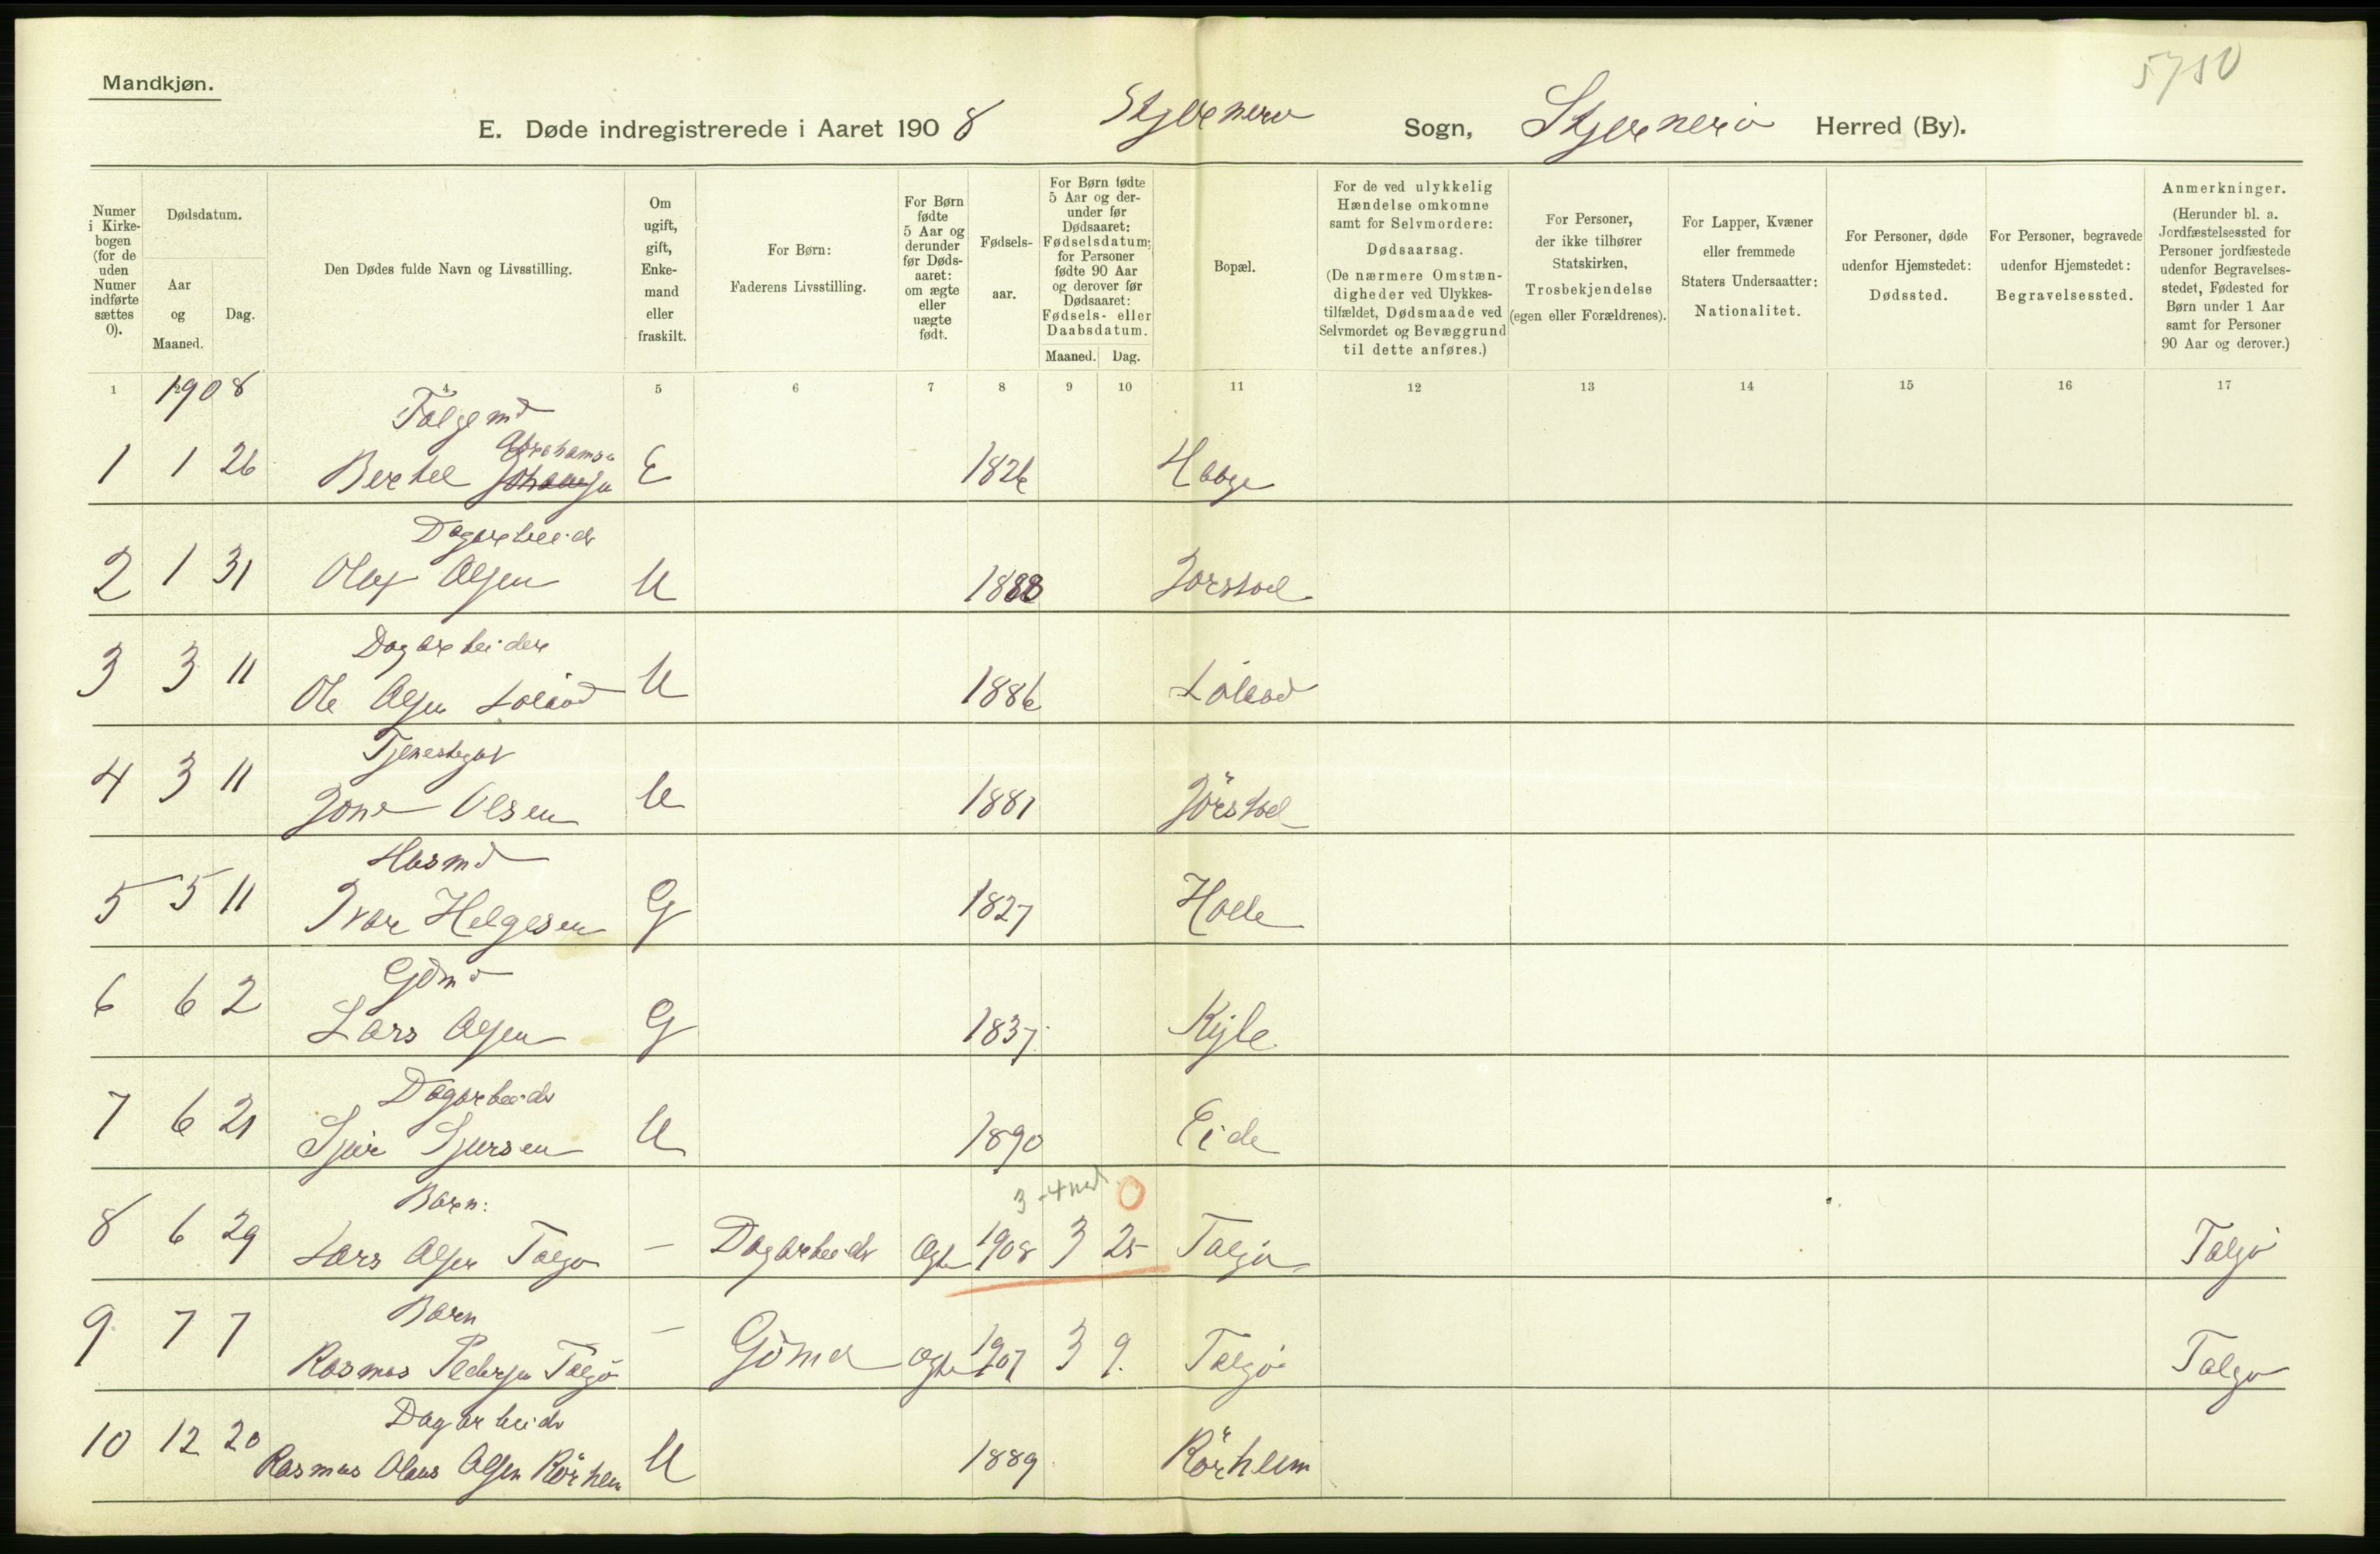 Mandkjøn.
5750
E. Døde indregistrerede i Aaret 1908 Stjernerø Sogn, Stjernerø Herred (By).
Numer i Kirkebogen (for de uden Numer indførte sættes 0).
Dødsdatum.
Aar og Maaned.
Dag.
Den Dødes fulde Navn og Livsstilling.
Om ugift, gift, Enkemand eller fraskilt.
For Børn:
Faderens Livsstilling.
For Børn fødte 5 Aar og derunder før Dødsaaret: om ægte eller uægte født.
Fødselsaar.
For Børn fødte 5 Aar og derunder før Dødsaaret: Fødselsdatum; for Personer fødte 90 Aar og derover før Dødsaaret: Fødsels- eller Daabsdatum.
Maaned. Dag.
Bopæl.
For de ved ulykkelig Hændelse omkomne samt for Selvmordere:
Dødsaarsag.
(De nærmere Omstændigheder ved Ulykkestilfældet, Dødsmaade ved Selvmordet og Bevæggrund til dette anføres.)
For Personer, der ikke tilhører Statskirken,
Trosbekjendelse
(egen eller Forældrenes).
For Lapper, Kvæner eller fremmede Staters Undersaatter:
Nationalitet.
For Personer, døde udenfor Hjemstedet:
Dødssted.
For Personer, begravede udenfor Hjemstedet:
Begravelsessted.
Anmerkninger.
(Herunder bl. a. Jordfæstelsessted for Personer jordfæstede udenfor Begravelsesstedet, Fødested for Børn under 1 Aar samt for Personer 90 Aar og derover.)
1 2 4 5 6 7 8 9 10 11 12 13 14 15 16 17
1908
Følgemd
Abrahams
1 1 26 Bertel E 1826 Hauge
Dagarbeidr
2 1 31 Olaf Olsen U 1888 Jorstad
Dagarbeider
3 3 11 Ole Olsen Løland U 1886 Løland
Tjenestegut
4 3 11 Jone Olsen U 1881 Jörstad
Husmd
5 5 11 Ivar Helgesen G 1827 Halle
Gdmd
6 6 2 Lars Olsen G 1837 Kyle
Dagarbeidr
7 6 21 Sjur Sjursen U 1890 Eide
3-4 md 0
Barn:
8 6 29 Lars Olsen Talgø – Dagarbeidr Ægte 1908 3 25 Talgø Talgø
Barn
9 7 7 Rasmus Pedersen Talgø – Gdmd Ægte 1907 3 9. Talgø Talgø
Dagarbeidr
10 12 20 Rasmus Olaus Olsen Rörheim U 1889 Rörheim